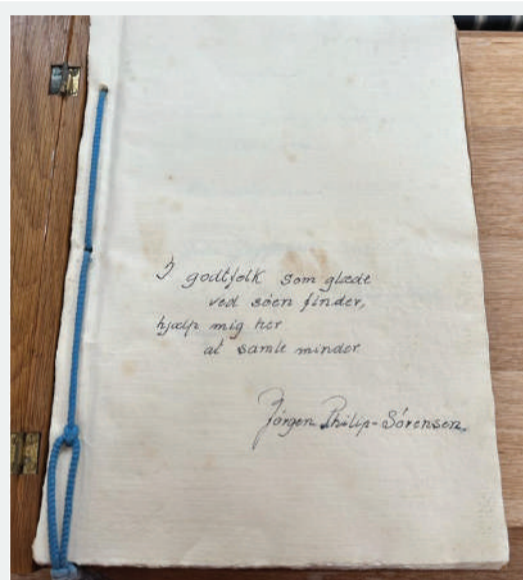 I godtfolk som glæde
ved søen finder,
hjælp mig her
at samle minder.
Jørgen Philip-Sørensen.